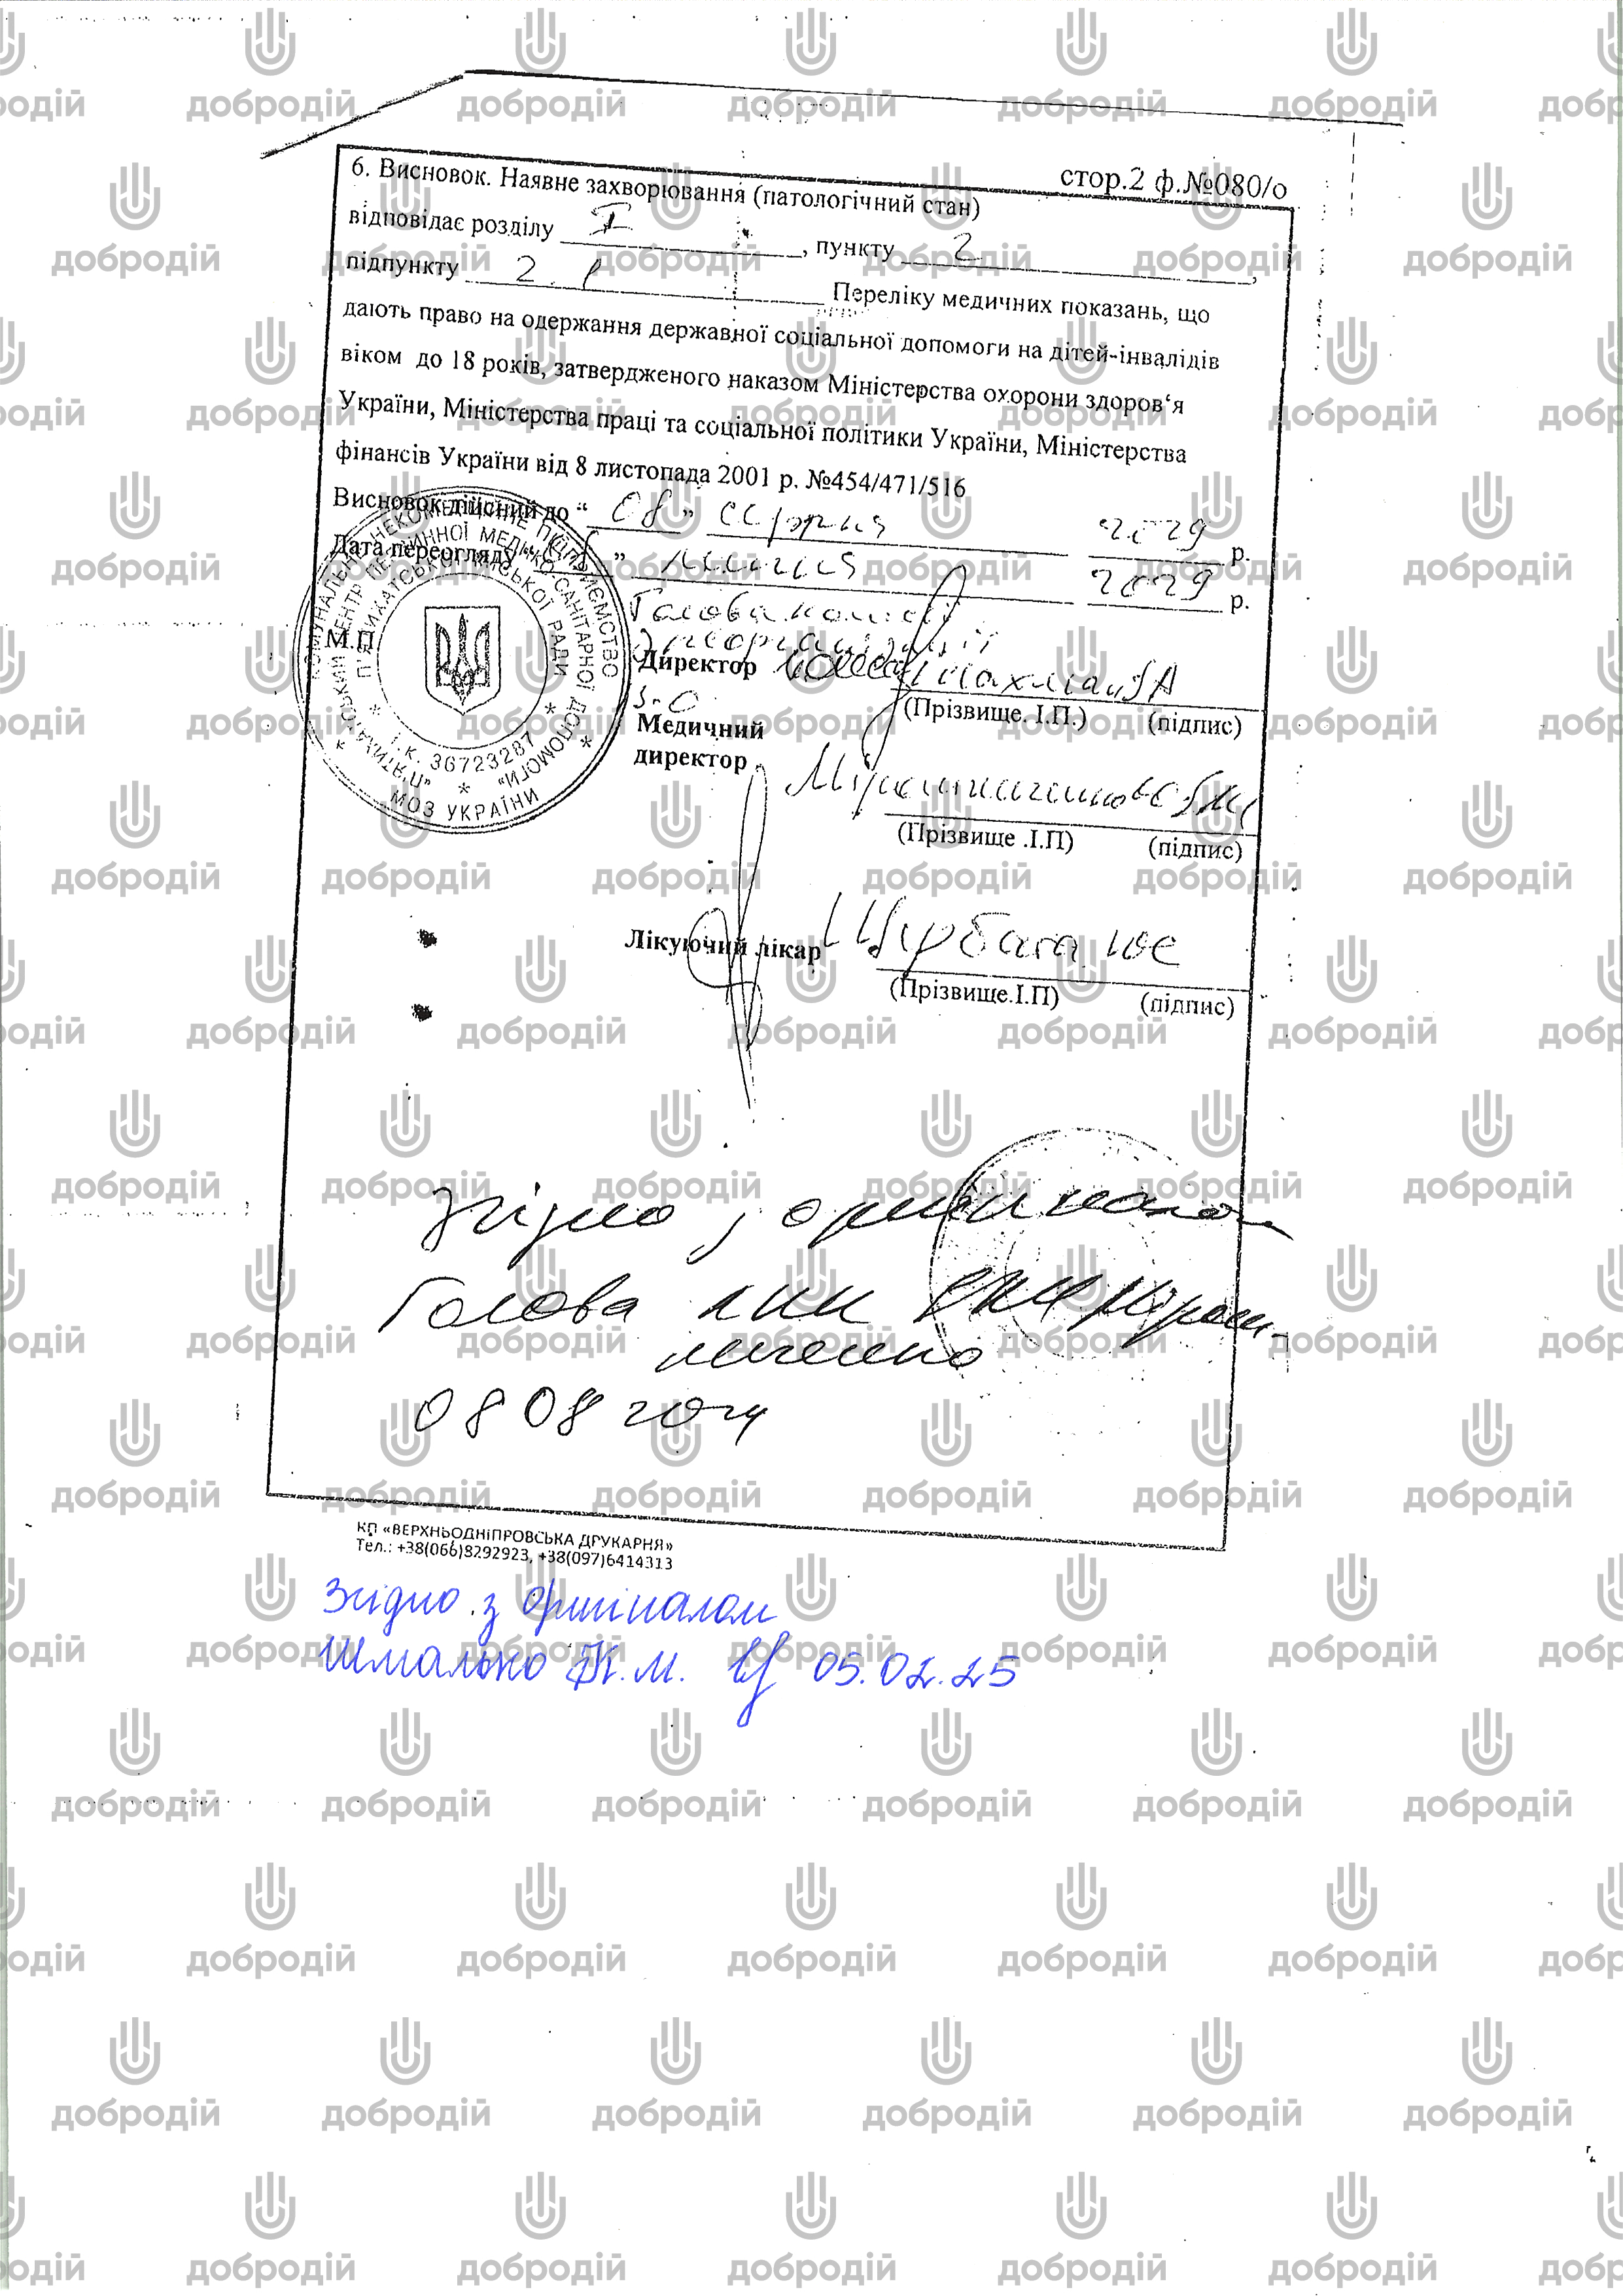 стор.2 ф.№080/о
6. Висновок. Наявне захворювання (патологічний стан)
відповідає розділу I , пункту 2 ,
підпункту 2.1 Переліку медичних показань, що
дають право на одержання державної соціальної допомоги на дітей-інвалідів
віком до 18 років, затвердженого наказом Міністерства охорони здоров‘я
України, Міністерства праці та соціальної політики України, Міністерства
фінансів України від 8 листопада 2001 р. №454/471/516
Висновок дійсний до “ 08 ” 2029 р.
Дата перегляду “ ” липня 2029 р.
Голова комісії
з реорганізації
М.П.
Директор
(Прізвище. І.П.) (підпис)
Медичний
директор
(Прізвище .І.П) (підпис)
Лікуючий лікар
(Прізвище.І.П) (підпис)
КОМУНАЛЬНЕ НЕКОМЕРЦІЙНЕ ПІДПРИЄМСТВО
ЦЕНТР ПЕРВИННОЇ МЕДИКО-САНІТАРНОЇ ДОПОМОГИ»
П'ЯТИХАТСЬКОЇ МІСЬКОЇ РАДИ
І.К. 36723287
МОЗ УКРАЇНИ
Згідно з оригіналом
Голова ЛКК
08 08 2024
КП «ВЕРХНЬОДНІПРОВСЬКА ДРУКАРНЯ»
Тел.: +38(066)8292923, +38(097)6414313
Згідно з оригіналом
Шмалько К.М. 05.02.25
добродій